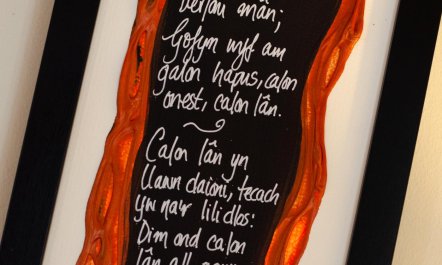 berlau mân;
Gofyn wyf am
galon hapus, calon
onest, calon lân.
Calon lân yn
llawn daioni, tecach
yw na'r lili dlos:
Dim ond calon
lân all